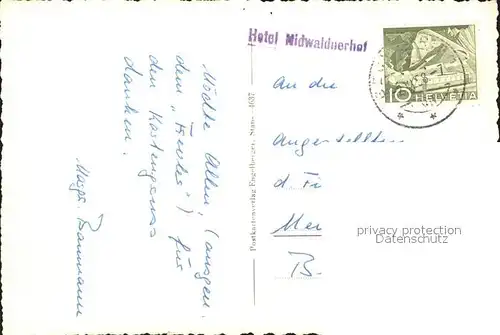 Hotel Nidwaldnerhof
10
HELVETIA
Möchte Allen, (ausgen.
dem ") für
den Kartengruss
danken.
Margr. Baumann
Postkartenverlag Engelberger, Stans 4637
An die
Angestellten
d. Fi
Mei
B.
privacy protection
Datenschutz